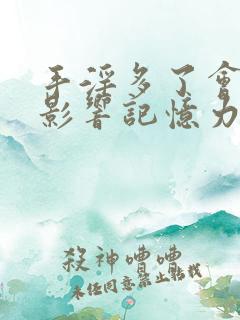 手淫多了會
影響記憶力
殺神嘈嘈
未經同意禁止轉載